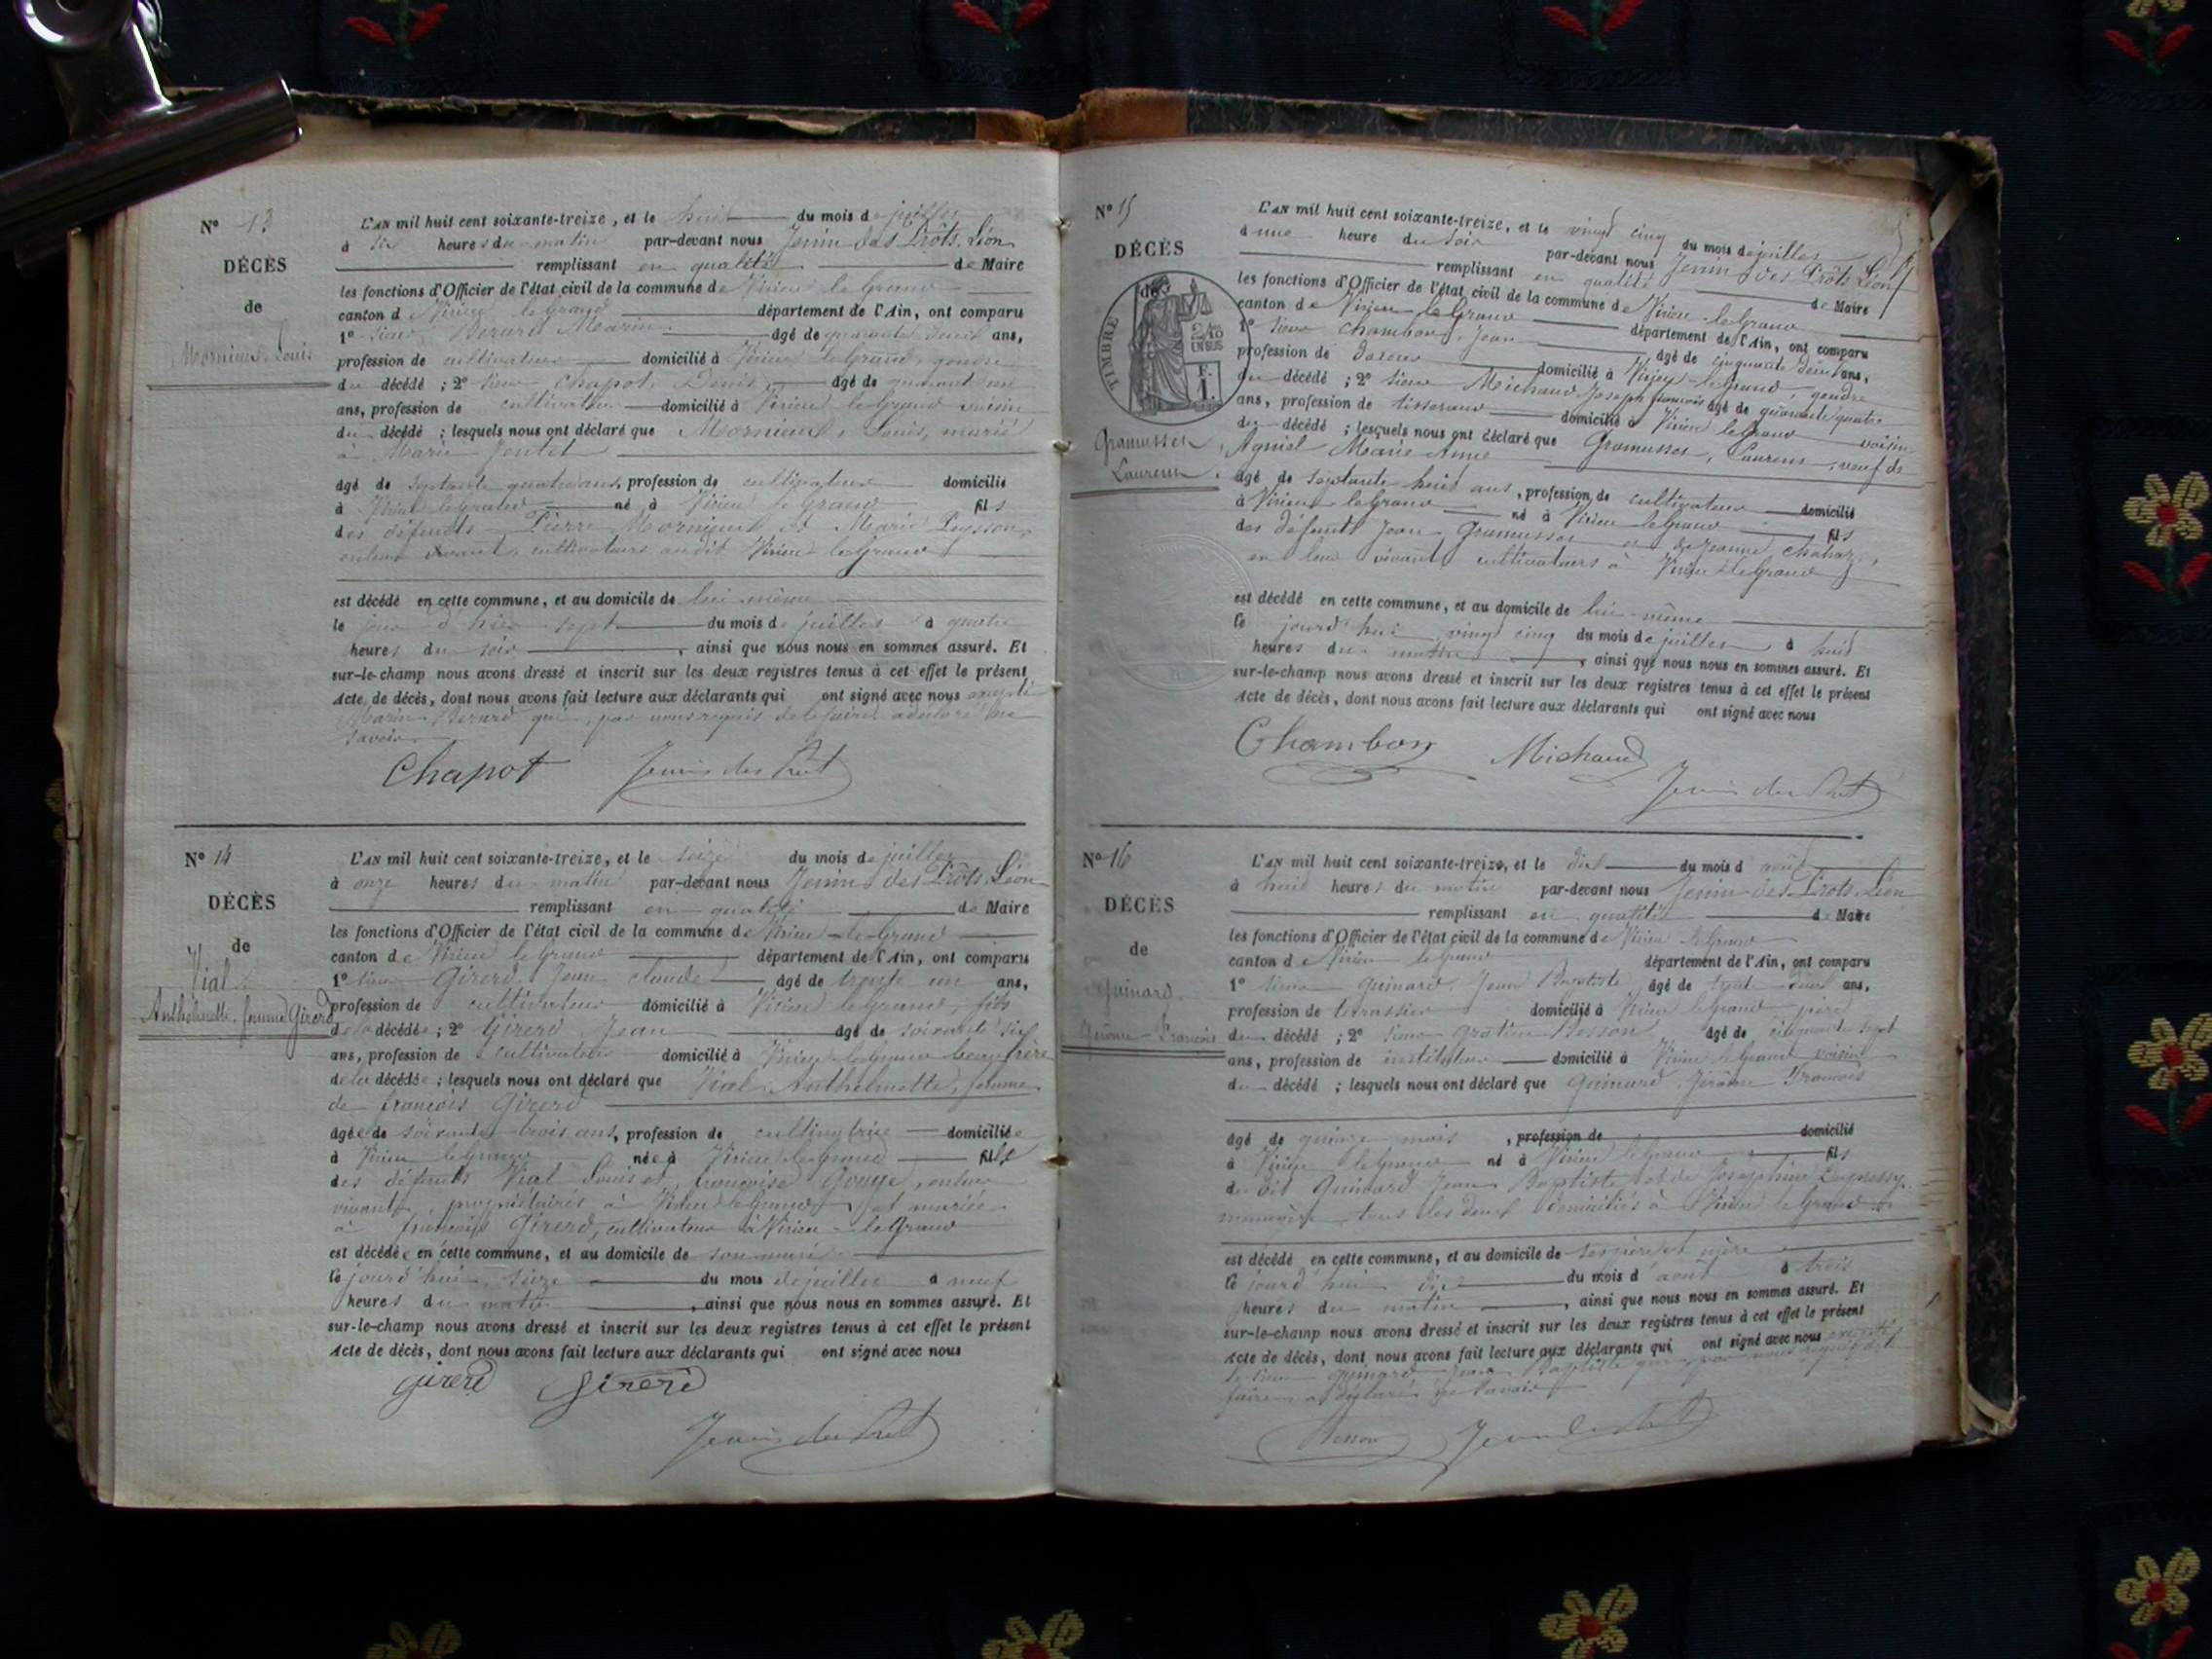 N° 13
DÉCÈS
de
Mornieux Louis
L'AN mil huit cent soixante-treize, et le huit du mois de juillet
à six heures du matin par-devant nous Jenin des Prôts, Léon
remplissant en qualité de Maire
les fonctions d'Officier de l'état civil de la commune de Virieu le Grand
canton de Virieu le Grand département de l'Ain, ont comparu
1° sieur Berard Marin âgé de quarante ans,
profession de cultivateur domicilié à Virieu le Grand, gendre
du décédé ; 2° sieur Chapot, Denis, âgé de quarante un
ans, profession de cultivateur domicilié à Virieu le Grand voisin
du décédé ; lesquels nous ont déclaré que Mornieux, Louis, marié
à Marie
âgé de septante quatre ans, profession de cultivateur domicilié
à Virieu le Grand né à Virieu le Grand fils
des défunts Pierre Mornieux et Marie Peysson
en leur vivant cultivateurs audit Virieu le Grand
est décédé en cette commune, et au domicile de lui-même
le jour d'hier sept du mois de juillet à quatre
heures du soir, ainsi que nous nous en sommes assuré. Et
sur-le-champ nous avons dressé et inscrit sur les deux registres tenus à cet effet le présent
Acte de décès, dont nous avons fait lecture aux déclarants qui ont signé avec nous excepté
Marin Berard qui, par nous requis de le faire a déclaré ne
savoir
Chapot Jenin des Prôt
N° 14
DÉCÈS
de
Vial
Anthelmette femme Girerd
L'AN mil huit cent soixante-treize, et le seize du mois de juillet
à onze heures du matin par-devant nous Jenin des Prôts, Léon
remplissant en qualité de Maire
les fonctions d'Officier de l'état civil de la commune de Virieu-le-Grand
canton de Virieu le Grand département de l'Ain, ont comparu
1° sieur Girerd, Jean Claude âgé de trente un ans,
profession de cultivateur domicilié à Virieu le Grand, fils
de la décédée ; 2° Girerd Jean âgé de soixante six
ans, profession de cultivateur domicilié à Virieu le Grand beau frère
de la décédée ; lesquels nous ont déclaré que Vial Anthelmette, femme
de François Girerd
âgée de soixante trois ans, profession de cultivatrice domiciliée
à Virieu le Grand née à Virieu le Grand fille
des défunts Vial Louis et Françoise Gouge, en leur
vivant propriétaires à Virieu le Grand et mariée
à François Girerd, cultivateur à Virieu-le-Grand
est décédée en cette commune, et au domicile de son mari
le jourd'hui seize du mois de juillet à neuf
heures du matin, ainsi que nous nous en sommes assuré. Et
sur-le-champ nous avons dressé et inscrit sur les deux registres tenus à cet effet le présent
Acte de décès, dont nous avons fait lecture aux déclarants qui ont signé avec nous
Girerd Girerd
Jenin des Prôt
N° 15
DÉCÈS
de
TIMBRE
2/10 EN SUS
F. 1.
Gramusset
Laurent
L'AN mil huit cent soixante-treize, et le vingt cinq du mois de juillet
à une heure du soir par-devant nous Jenin des Prôts, Léon
remplissant en qualité de Maire
les fonctions d'Officier de l'état civil de la commune de Virieu le Grand
canton de Virieu le Grand département de l'Ain, ont comparu
1° sieur Chambon, Jean âgé de cinquante deux ans,
profession de domicilié à Virieu-le-Grand, gendre
du décédé ; 2° sieur Michaud Joseph François âgé de quarante quatre
ans, profession de tisserand domicilié à Virieu le Grand voisin
du décédé ; lesquels nous ont déclaré que Gramusset, Laurent, veuf de
Agniel Marie Anne
âgé de septante huit ans, profession de cultivateur domicilié
à Virieu le Grand né à Virieu le Grand fils
des défunts Jean Gramusset et de Jeanne Chahaz,
en leur vivant cultivateurs à Virieu le Grand
est décédé en cette commune, et au domicile de lui-même
le jourd'hui vingt cinq du mois de juillet à huit
heures du matin, ainsi que nous nous en sommes assuré. Et
sur-le-champ nous avons dressé et inscrit sur les deux registres tenus à cet effet le présent
Acte de décès, dont nous avons fait lecture aux déclarants qui ont signé avec nous
Chambon Michaud
Jenin des Prôt
N° 16
DÉCÈS
de
Guinard
Jérôme François
L'AN mil huit cent soixante-treize, et le dix du mois d'août
à huit heures du matin par-devant nous Jenin des Prôts, Léon
remplissant en qualité de Maire
les fonctions d'Officier de l'état civil de la commune de Virieu le Grand
canton de Virieu le Grand département de l'Ain, ont comparu
1° sieur Guinard, Jean Baptiste âgé de trente deux ans,
profession de terrassier domicilié à Virieu le Grand père
du décédé ; 2° sieur Gratien Besson âgé de cinquante sept
ans, profession de instituteur domicilié à Virieu le Grand voisin
du décédé ; lesquels nous ont déclaré que Guinard Jérôme François
âgé de quinze mois, profession de domicilié
à Virieu le Grand né à Virieu le Grand fils
du dit Guinard Jean Baptiste et de Joséphine
tous les deux domiciliés à Virieu le Grand
est décédé en cette commune, et au domicile de ses père et mère
le jourd'hui dix du mois d'août à trois
heures du matin, ainsi que nous nous en sommes assuré. Et
sur-le-champ nous avons dressé et inscrit sur les deux registres tenus à cet effet le présent
Acte de décès, dont nous avons fait lecture aux déclarants qui ont signé avec nous excepté
le sieur Guinard Jean Baptiste qui, par nous requis de le
faire a déclaré ne savoir
Besson Jenin des Prôt